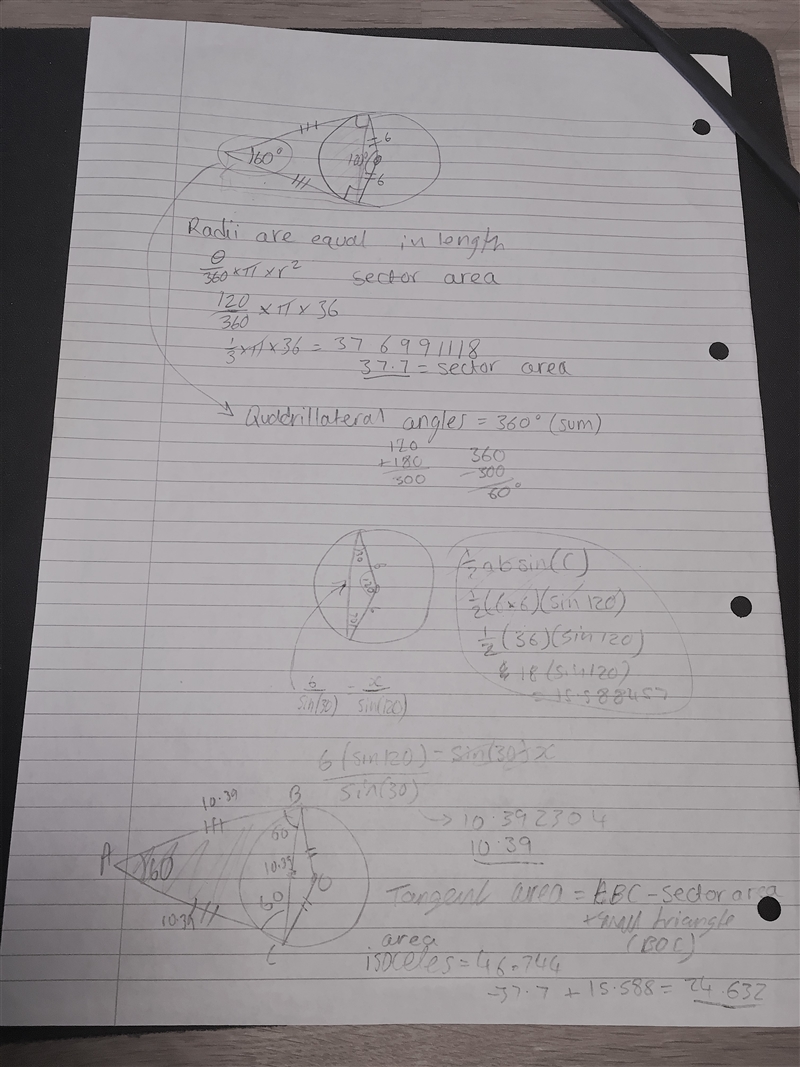 60°
6
120°
6
Radii are equal in length
θ/360 × π × r² sector area
120/360 × π × 36
1/3 × π × 36 = 37 6991118
37.7 = sector area
Quadrillateral angles = 360° (sum)
120
+180
300
360
300
60°
30
6
120
6
30
1/2 ab sin(C)
1/2 (6×6)(sin 120)
1/2 (36)(sin 120)
18 (sin 120)
= 15.588457
6/sin(30) = x/sin(120)
6(sin120)/sin(30) = sin(30) x
→ 10.392304
10.39
10.39
B
60
A
60
10.39
O
60
10.39
C
Tangent area = ABC - sector area
+ small triangle
(BOC)
area
isoceles = 46.744
-37.7 + 15.588 = 24.632